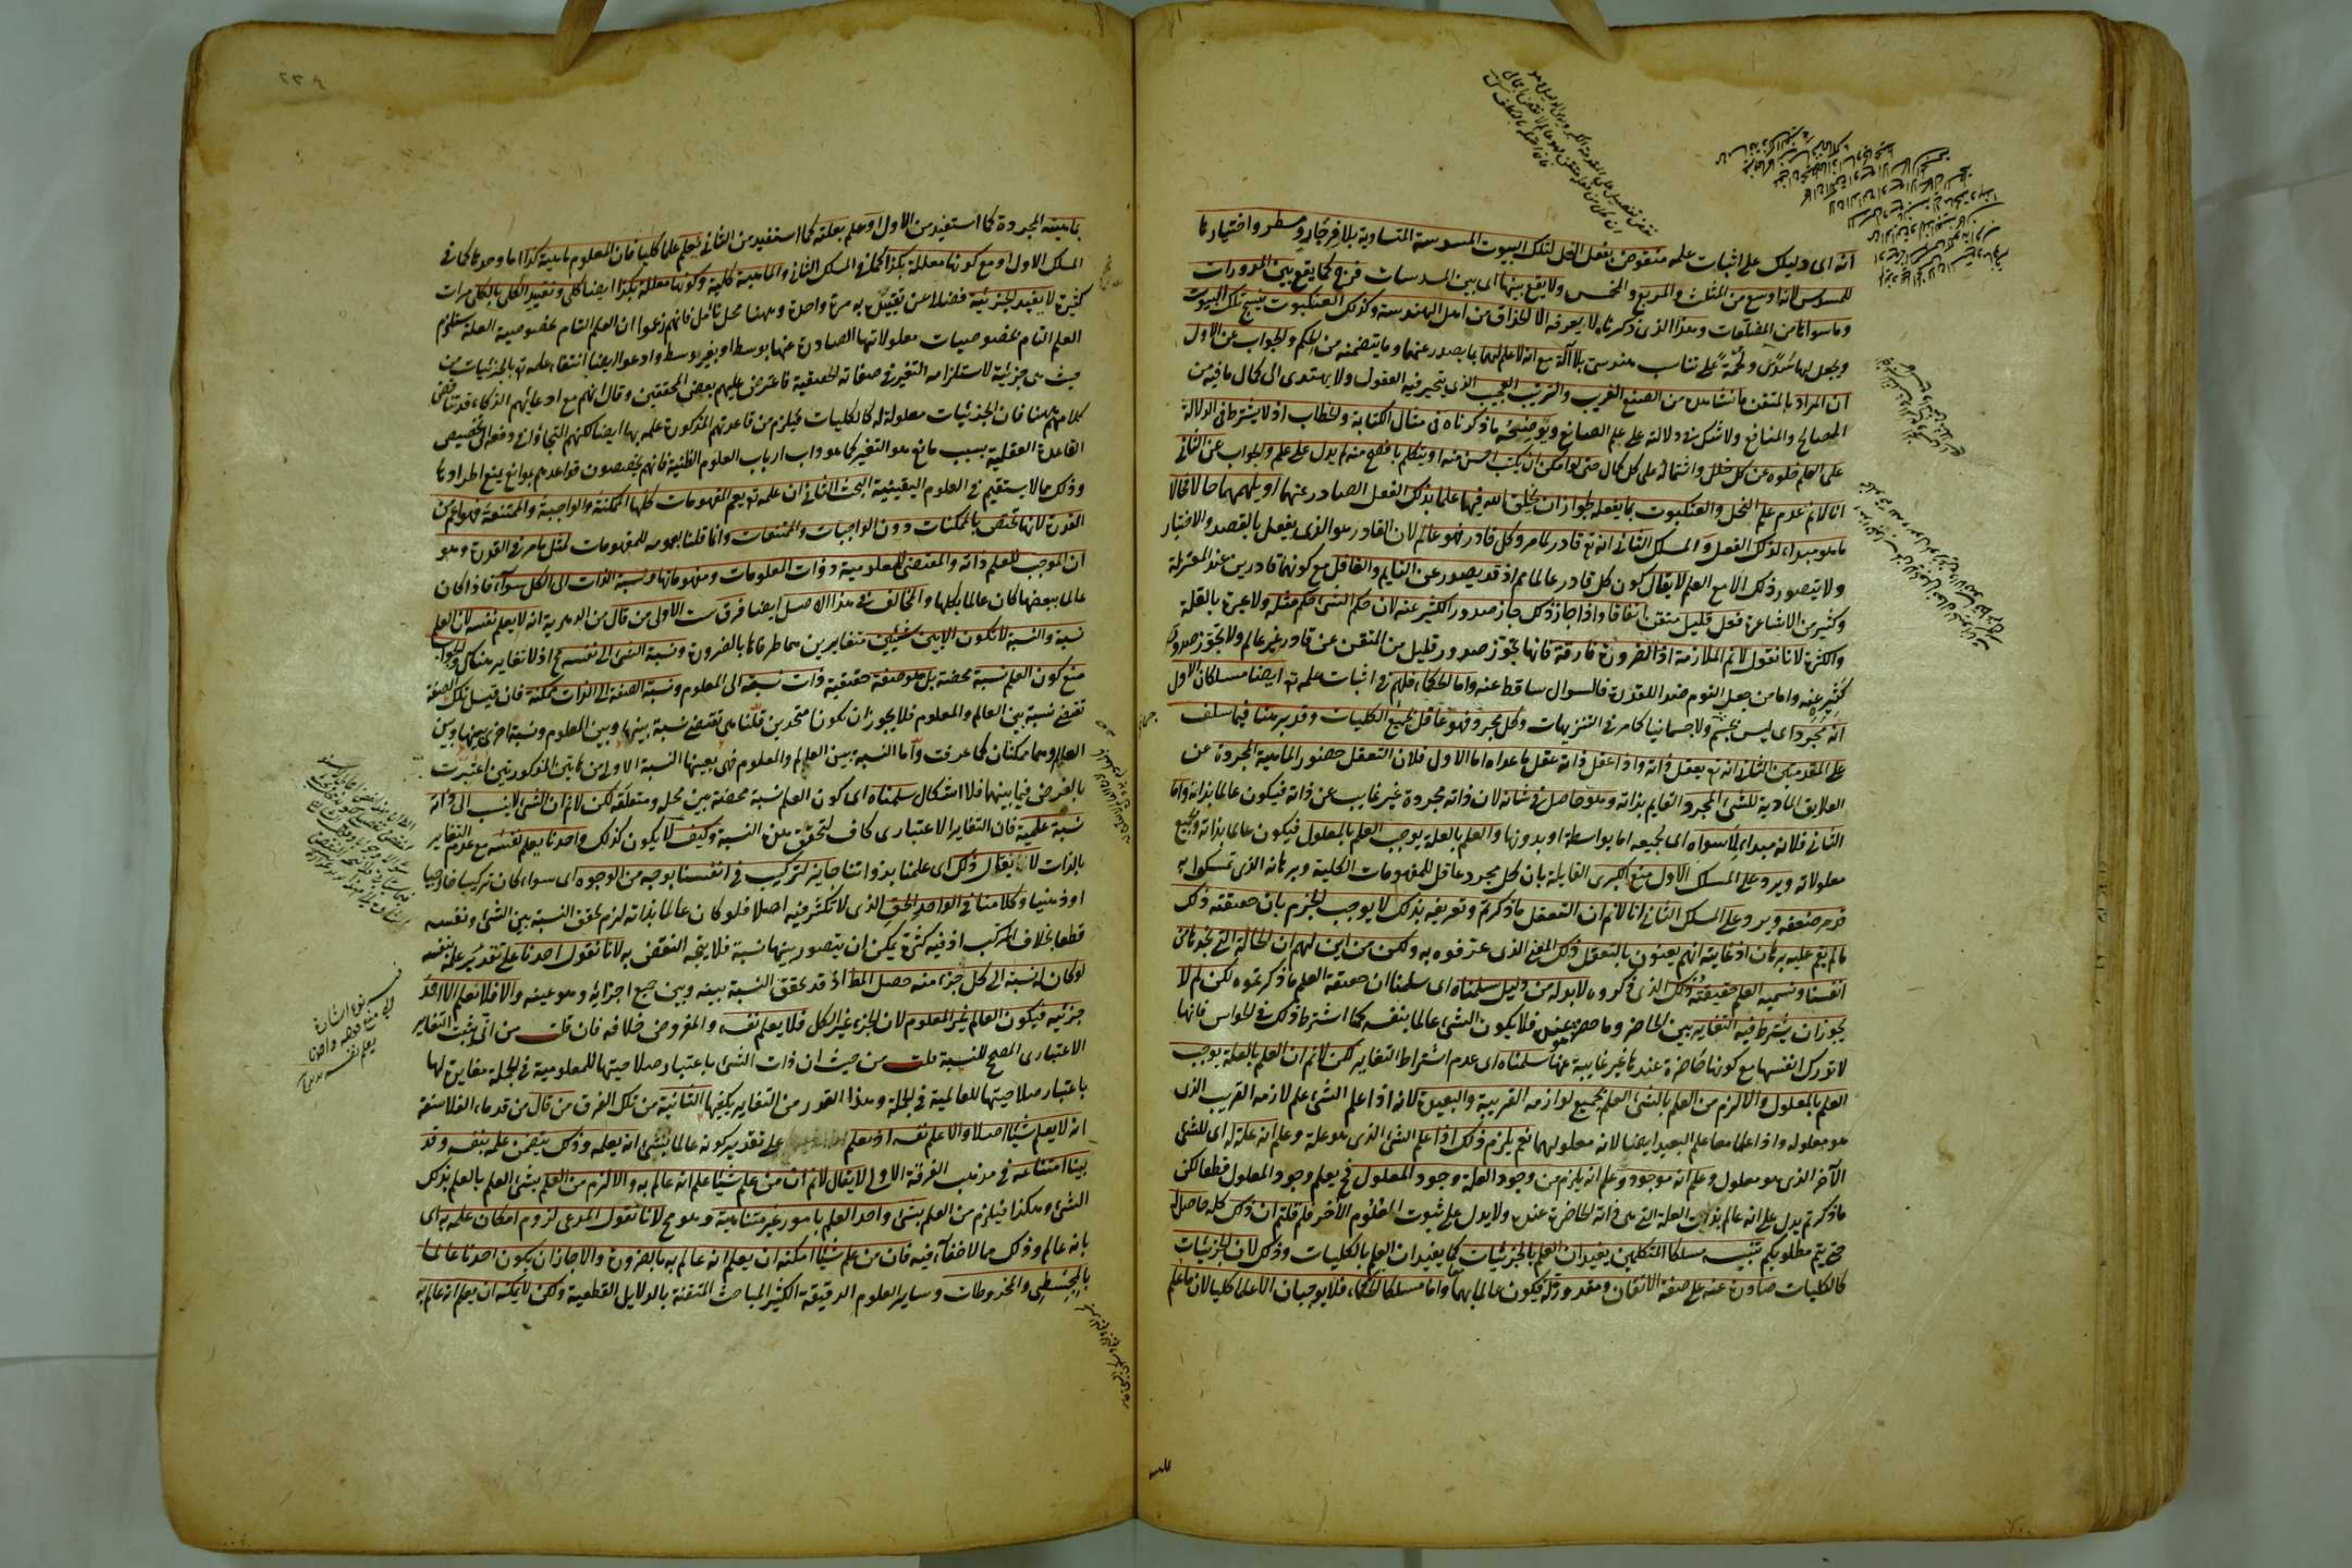 انه اى دليلك على اثبات علمه منقوض بفعل النحل لتلك البيوت المسدسة المتساوية بلا فرجار ومسطر واختيارها
للمسدس لانه اوسع من المثلث والمربع والمخمس ولا يقع بينها اى بين المسدسات فرج كما يقع بين المدورات
وما سواها من المضلعات وهذا الذى ذكرناه لا يعرفه الا الحذاق من اهل الهندسة وكذلك العنكبوت ينسج تلك البيوت
ويجعل لها سدى ولحمة على تناسب هندسى بلا آلة مع انه لا علم لهما بما يصدر عنهما وما يتضمنه من الحكم والجواب عن الاول
ان المراد بالمتقن ما نشاهده من الصنع الغريب والترتيب العجيب الذى يتحير فيه العقول ولا يهتدى الى كمال ما فيه من
المصالح والمنافع ولا شك فى دلالته على علم الصانع ويوضحه ما ذكرناه فى مثال الكتابة والخطاب اذ لا يشترط فى الدلالة
على العلم خلوه عن كل خلل واشتماله على كل كمال حتى لو امكن ان يكتب احسن منه او يتكلم بافصح منه لم يدل على علم والجواب عن الثانى
انا لا نم عدم علم النحل والعنكبوت بما يفعله لجواز ان يخلق الله فيها علما بذلك الفعل الصادر عنهما او يلهمهما حالا فحالا
ما هو مبدأ لذلك الفعل والمسلك الثانى انه تع قادر لما مر وكل قادر فهو عالم لان القادر هو الذى يفعل بالقصد والاختيار
ولا يتصور ذلك الا مع العلم لا يقال كون كل قادر عالما مم اذ قد يصدر عن النايم والغافل مع كونهما قادرين عند المعتزلة
وكثير من الاشاعرة فعل قليل متقن اتفاقا واذا جاز ذلك جاز صدور الكثير عنه لان حكم الشئ حكم مثله ولا عبرة بالقلة
والكثرة لانا نقول لا نم الملازمة اذ الضرورة فارقة فانها تجوز صدور قليل من المتقن عن قادر غير عالم ولا تجوز صدور
كثير عنه واما من جعل النوم ضد اللقدرة فالسوال ساقط عنه واما الحكماء فلهم فى اثبات علمه تع ايضا مسلكان الاول
انه مجرد اى ليس بجسم ولا جسمانيا كما مر فى التنزيهات وكل مجرد فهو عاقل لجميع الكليات وقد برهنا فيما سلف
على المقدمتين الثانى انه تع يعقل ذاته واذا عقل ذاته عقل ما عداه اما الاول فلان التعقل حضور الماهية المجردة عن
العلايق المادية للشئ المجرد القايم بذاته وهو حاصل فى شانه لان ذاته مجردة غير غايب عن ذاته فيكون عالما بذاته واما
الثانى فلانه مبداء لما سواه اى لجميعه اما بواسطة او بدونها والعلم بالعلة يوجب العلم بالمعلول فيكون عالما بذاته وبجميع
معلولاته ويرد على المسلك الاول منع الكبرى القايلة بان كل مجرد عاقل للمفهومات الكلية وبرهانه الذى تمسكوا به
قد مر ضعفه ويرد على المسلك الثانى انا لا نم ان التعقل ما ذكرتم وتعريفه بذلك لا يوجب الجزم بان حقيقته ذلك
ما لم يقم عليه برهان اذ غايته انهم يعنون بالتعقل ذلك المعنى الذى عرفوه به ولكن من اين لهم ان الحالة التى نجدها من
انفسنا ونسميه العلم حقيقته ذلك الذى ذكروه لا بد له من دليل سلمناه اى سلمنا ان حقيقة العلم ما ذكرتموه لكن لم لا
يجوز ان يشترط فيه التغاير بين الحاضر وما حضر عنده فلا يكون الشئ عالما بنفسه كما اشترط ذلك فى الحواس فانها
لا تدرك انفسها مع كونها حاضرة عندها غير غايبة عنها سلمناه اى عدم اشتراط التغاير لكن لا نم ان العلم بالعلة يوجب
العلم بالمعلول والا لزم من العلم بالشئ العلم بجميع لوازمه القريبة والبعيدة لانه اذا علم الشئ علم لازمه القريب الذى
هو معلوله واذا علما معا علم البعيد ايضا لانه معلول لهما نعم يلزم ذلك اذا علم الشئ الذى هو علة وعلم انه علة له اى للشئ
الآخر الذى هو معلول وعلم انه موجود وعلم انه يلزم من وجود العلة وجود المعلول فح يعلم وجود المعلول قطعا لكن
ما ذكرتم يدل على انه عالم بذات العلة التى هى ذاته الحاضرة عنده ولا يدل على ثبوت العلوم الأخر فلم قلتم ان ذلك كله حاصل له
حتى يتم مطلوبكم تنبيه مسلكا المتكلمين يفيدان العلم بالجزئيات كما يفيدان العلم بالكليات وذلك لان الجزئيات
كالكليات صادرة عنه على صفة الاتقان ومقدورة له فيكون عالما بهما واما مسلكا الحكماء فلا يوجبان الا علما كليا لان ما علم
بماهيته المجردة كما استفيد من الاول او علم بعلته كما استفيد من الثانى يعلم علما كليا فان المعلوم ماهية كذا اما وحدها كما فى
المسلك الاول او مع كونها معللة بكذا كما فى المسلك الثانى والماهية كلية وكونها معللة بكذا ايضا كلى وتقييد الكلى بالكلى مرات
كثيرة لا يفيد الجزئية فضلا عن تقييده به مرة واحدة وههنا محل تامل فانهم زعموا ان العلم التام بخصوصية العلة يستلزم
العلم التام بخصوصيات معلولاتها الصادرة عنها بوسط او بغير وسط وادعوا ايضا انتفاء علمه تع بالجزئيات من
حيث هى جزئية لاستلزامه التغير فى صفاته الحقيقية فاعترض عليهم بعض المحققين وقال انهم مع ادعائهم الذكاء قد تناقض
كلامهم ههنا فان الجزئيات معلولة له كالكليات فيلزم من قاعدتهم المذكورة علمه بها ايضا لكنهم التجاؤا فى دفعه الى تخصيص
القاعدة العقلية بسبب مانع هو التغير كما هو داب ارباب العلوم الظنية فانهم يخصصون قواعدهم بموانع يمنع اطرادها
وذلك مما لا يستقيم فى العلوم اليقينية البحث الثانى ان علمه تع يعم المفهومات كلها الممكنة والواجبة والممتنعة فهو اعم من
القدرة لانها تختص بالممكنات دون الواجبات والممتنعات وانما قلنا بعمومه للمفهومات لمثل ما مر فى القدرة وهو
ان الموجب للعلم ذاته والمقتضى للمعلومية ذوات المعلومات ومفهوماتها ونسبة الذات الى الكل سوآء فاذا كان
عالما ببعضها كان عالما بكلها والمخالف فى هذا الاصل ايضا فرق ست الاولى من قال من الدهرية انه لا يعلم نفسه لان العلم
نسبة والنسبة لا تكون الا بين شيئين متغايرين هما طرفاها بالضرورة ونسبة الشئ الى نفسه مح اذ لا تغاير هناك والجواب
منع كون العلم نسبة محضة بل هو صفة حقيقية ذات نسبة الى المعلوم ونسبة الصفة الى الذات ممكنة فان قيل تلك الصفة
تقتضى نسبة بين العالم والمعلوم فلا يجوز ان يكونا متحدين قلنا هى تقتضى نسبة بينها وبين المعلوم ونسبة اخرى بينها وبين
العالم وهما ممكنتان كما عرفت واما النسبة بين العالم والمعلوم فهى بعينها النسبة الاولى من هاتين المذكورتين اعتبرت
بالعرض فيما بينهما فلا اشكال سلمناه اى كون العلم نسبة محضة بين محله ومتعلقه لكن لا نم ان الشئ لا ينسب الى ذاته
نسبة علمية فان التغاير الاعتبارى كاف لتحقق هذه النسبة وكيف لا يكون كذلك واحدنا يعلم نفسه مع عدم التغاير
بالذات لا يقال ذلك اى علمنا بذواتنا جايز لتركيب فى انفسنا بوجه من الوجوه اى سواء كان تركيبا خارجيا
او ذهنيا وكلامنا فى الواحد الحق الذى لا تكثر فيه اصلا فلو كان عالما بذاته لزم تحقق النسبة بين الشئ ونفسه
قطعا بخلاف المركب اذ فيه كثرة يمكن ان يتصور بينها نسبة فلا يتجه النقض به لانا نقول احدنا على تقدير علمه بنفسه
لو كان له نسبة الى كل جزء منه حصل المط اذ قد تحقق النسبة بينه وبين جميع اجزائه وهو عينه والا فلا نعلم الا احد
جزئيه فيكون العالم غير المعلوم لان الجزء غير الكل فلا يعلم نفسه والمفروض خلافه فان قلت من اين يثبت التغاير
الاعتبارى المصحح للنسبة قلت من حيث ان ذات الشئ باعتبار صلاحيتها للمعلومية فى الجملة مغايرة لها
باعتبار صلاحيتها للعالمية فى الجملة وهذا القدر من التغاير يكفيها الثانية من تلك الفرق من قال من قدماء الفلاسفة
انه لا يعلم شيئا اصلا والا علم نفسه اذ يعلم على تقدير كونه عالما بشئ انه يعلمه وذلك يتضمن علمه بنفسه وقد
بينا امتناعه فى مذهب الفرقة الاولى لا يقال لا نم ان من علم شيئا علم انه عالم به والا لزم من العلم بشئ العلم بالعلم بذلك
الشئ وهكذا فيلزم من العلم بشئ واحد العلم بامور غير متناهية وهو مح لانا نقول المدعى لزوم امكان علمه به اى
بانه عالم وذلك مما لا خفآء فيه فان من علم شيئا امكنه ان يعلم انه عالم به بالضرورة والا جاز ان يكون احدنا عالما
بالمجسطى والمخروطات وساير العلوم الدقيقة الكثير المباحث المتقنة بالدلايل القطعية ولكن لا يمكنه ان يعلم انه عالم به